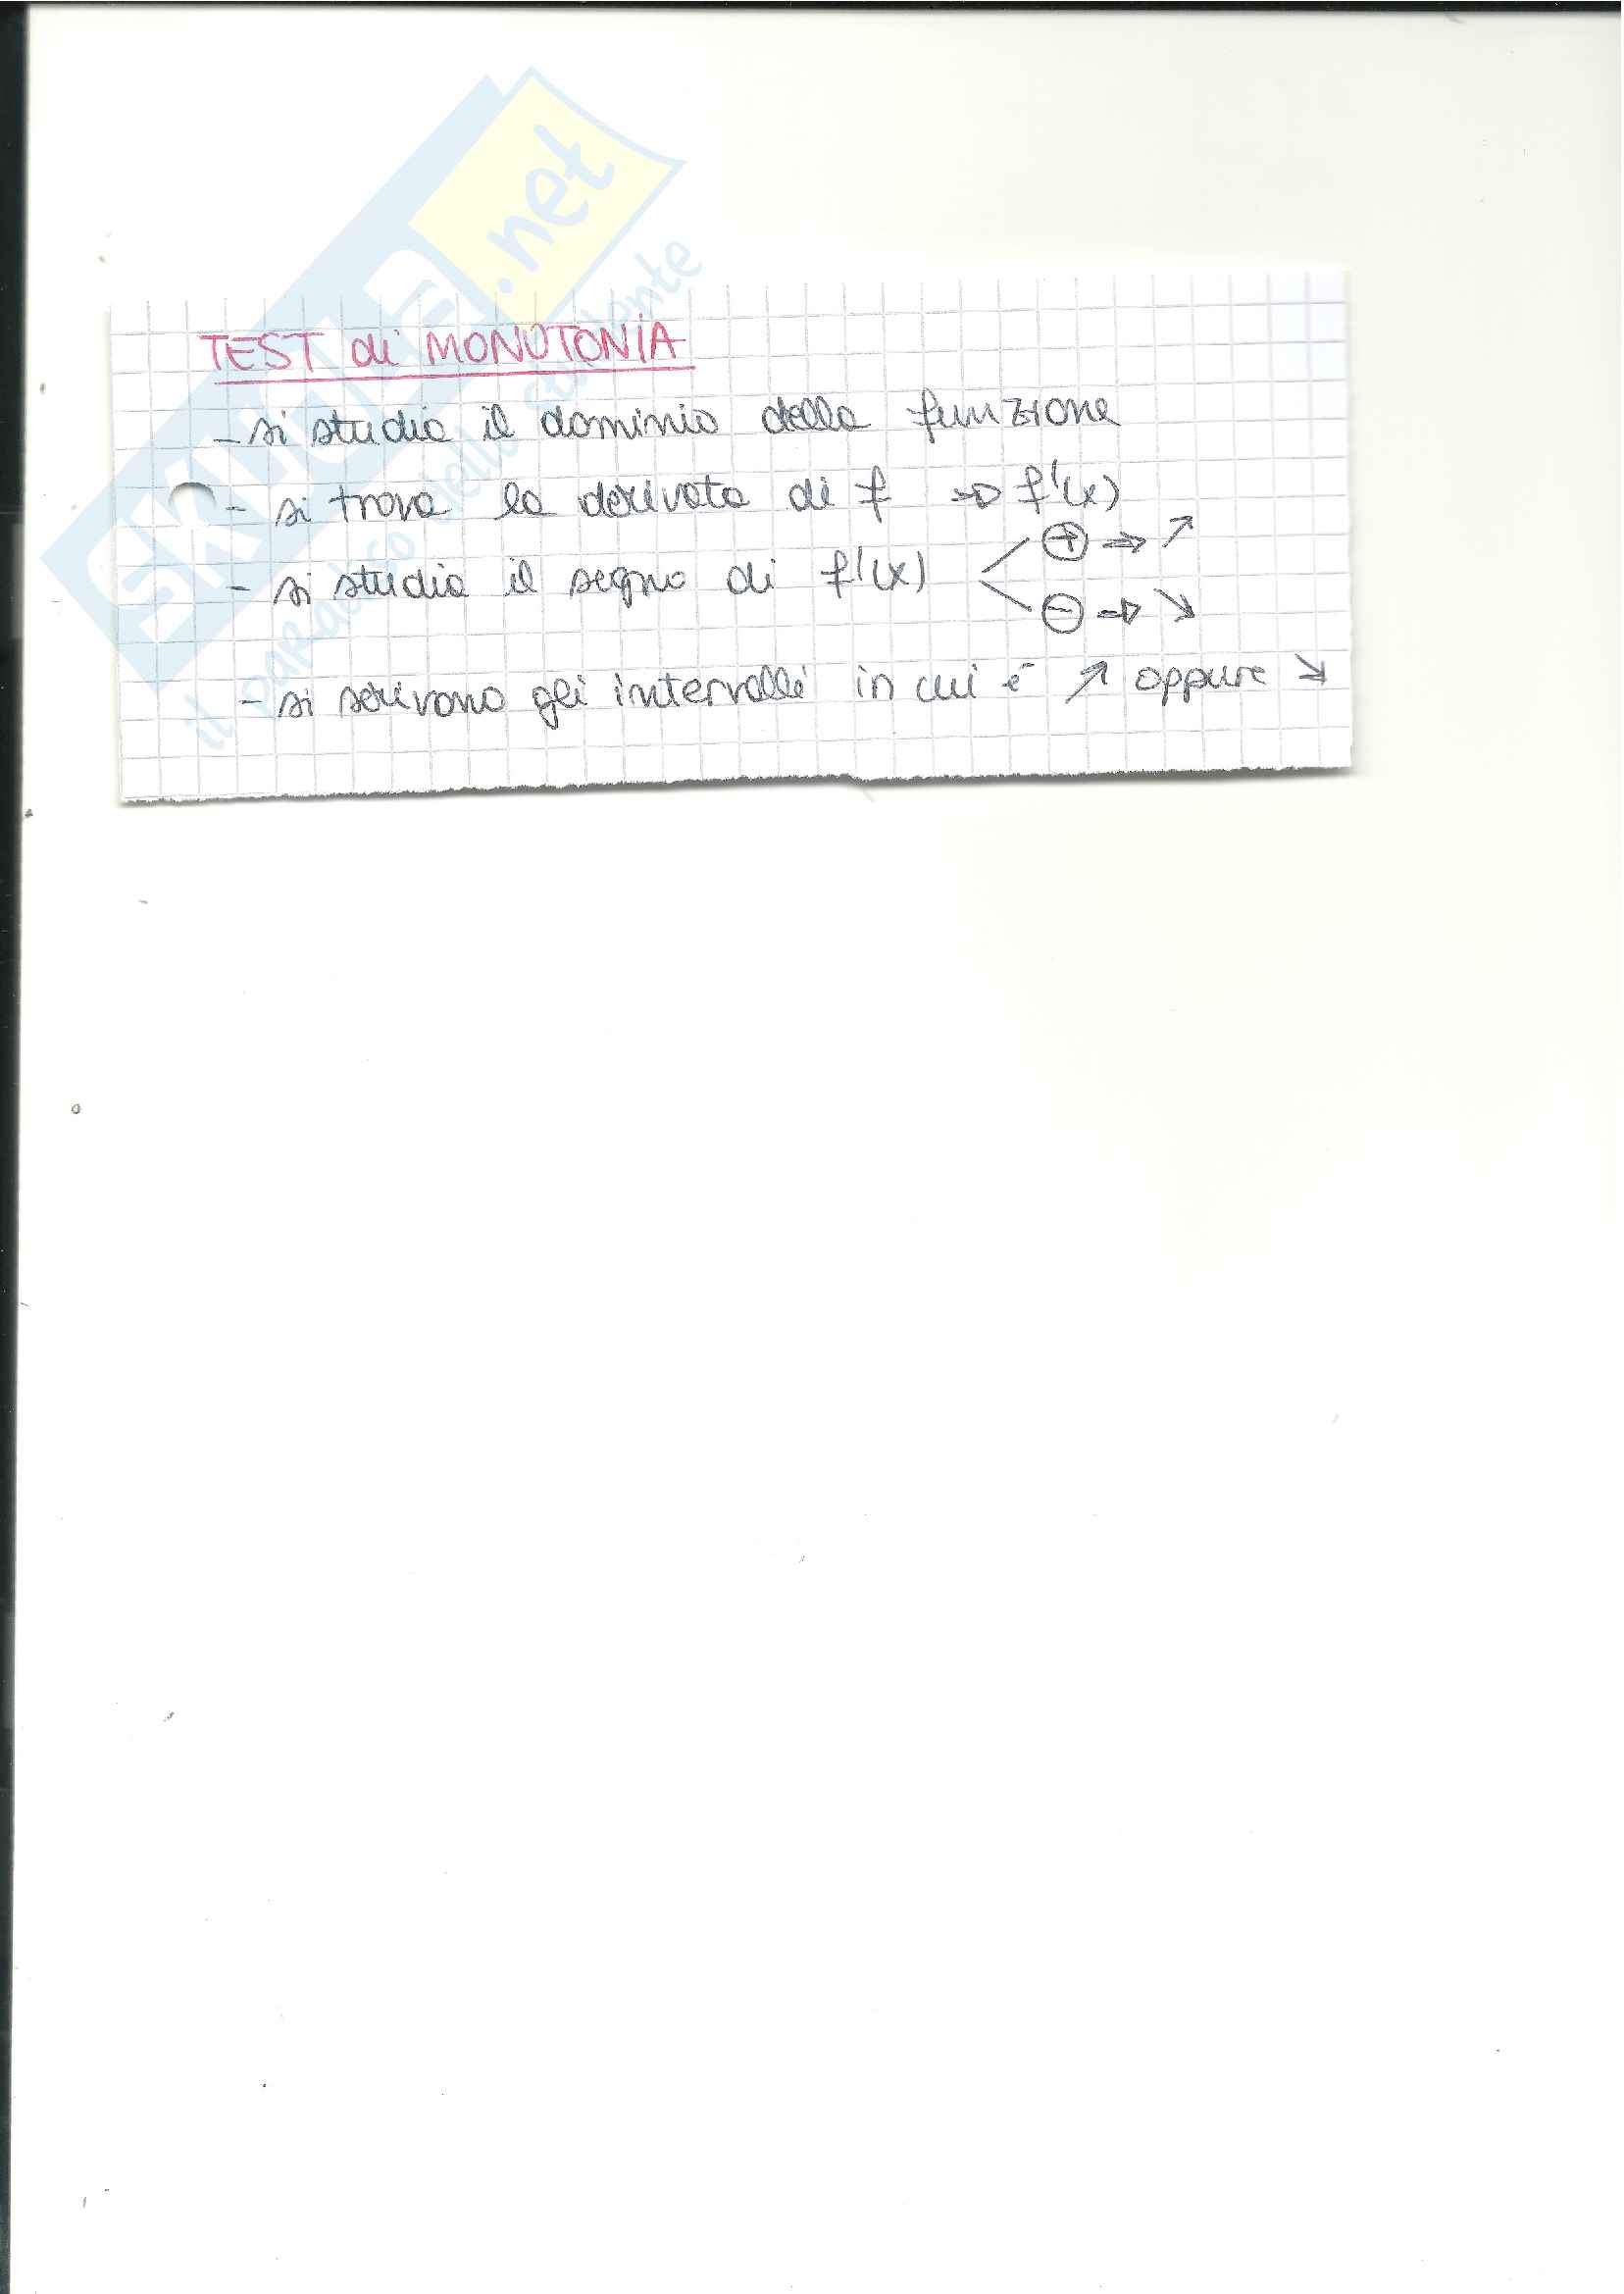 TEST di MONOTONIA
- si studia il dominio della funzione
- si trova la derivata di f ⇒ f'(x)
- si studia il segno di f'(x) < ⊕ ⇒ ↗
⊖ ⇒ ↘
- si scrivono gli intervalli in cui è ↗ oppure ↘
SKUOLA.net
il paradiso dello studente